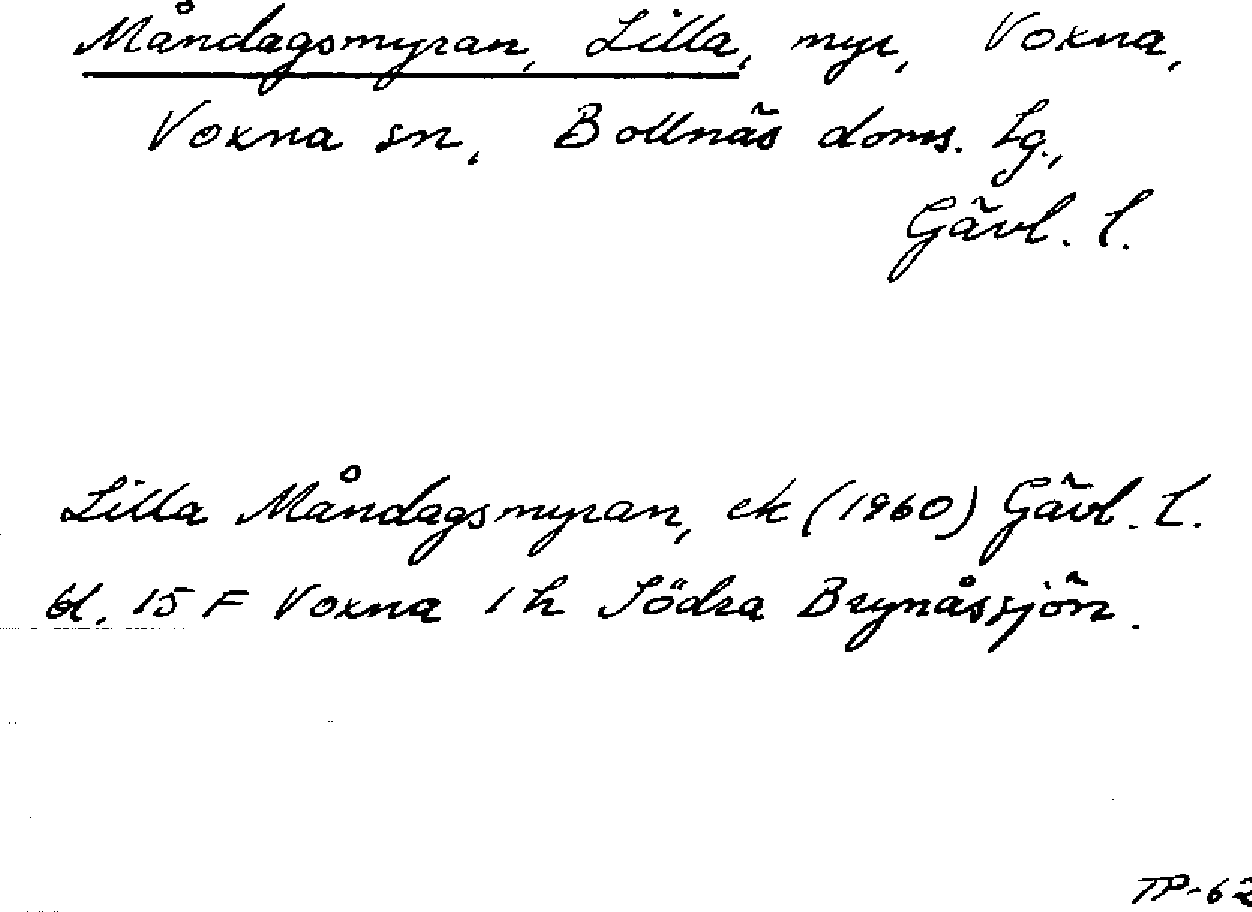 Måndagsmyran, Lilla, myr, Voxna,
Voxna sn, Bollnäs doms. lg.,
Gävl. l.
Lilla Måndagsmyran, ek (1960) Gävl. l.
bl. 15 F Voxna 1 h Södra Brynåssjön.
TP-62